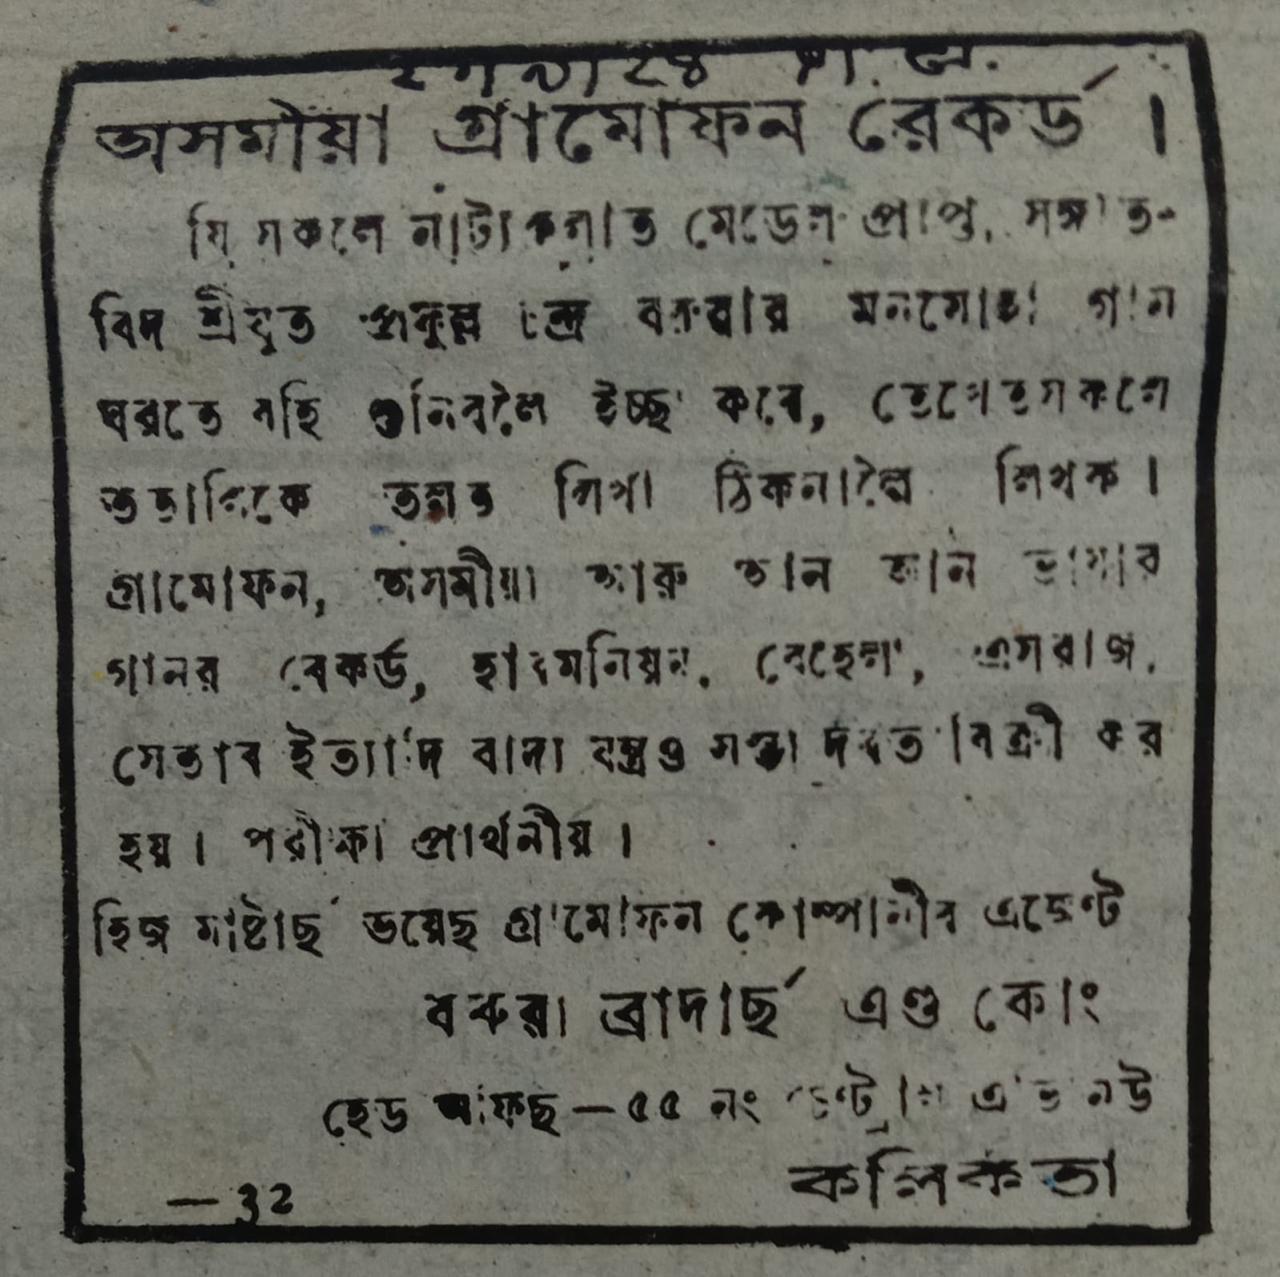 অসমীয়া গ্ৰামোফন ৰেকর্ড ।
যি সকলে নাট্যকলাত মেডেল প্ৰাপ্ত, সঙ্গীত-
বিদ শ্ৰীযুত প্ৰফুল্ল চন্দ্ৰ বৰুৱাৰ মনমোহা গান
ঘৰতে বহি শুনিবলৈ ইচ্ছা কৰে, তেখেতসকলে
ততালিকে তলত লিখা ঠিকনালৈ লিখক ।
গ্ৰামোফন, অসমীয়া আৰু আন আন ভাষাৰ
গানৰ ৰেকর্ড, হাৰমনিয়ম, বেহেলা, এসৰাজ,
সেতাৰ ইত্যাদি বাদ্য যন্ত্ৰও সস্তা দৰত বিক্ৰী কৰ
হয় । পৰীক্ষা প্ৰাৰ্থনীয় ।
হিজ মাষ্টাৰ্ছ ভয়েছ গ্ৰামোফন কোম্পানীৰ এজেণ্ট
বৰুৱা ব্ৰাদাৰ্ছ এণ্ড কোং
হেড আফিছ — ৫৫ নং চেণ্ট্ৰেল এভিনিউ
কলিকতা
— 32